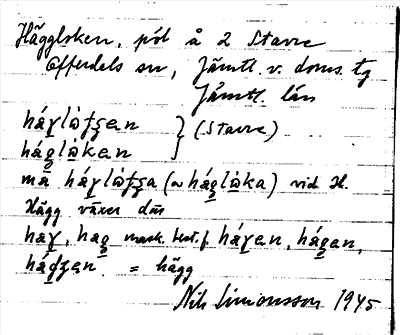 Häggloken, pöl å 2 Stavre
Offerdals sn, Jämtl. v. doms. tg
Jämtl. län
háɣlò̀tʃen } (Stavre)
háglò̀ken
må háɣlò̀tʃa (~ háglò̀ka) vid H.
Hägg växer där
haɣ, hag mask. best. f. háɣen, hágen,
hádʒen. = hägg
Nils Simonsson 1945